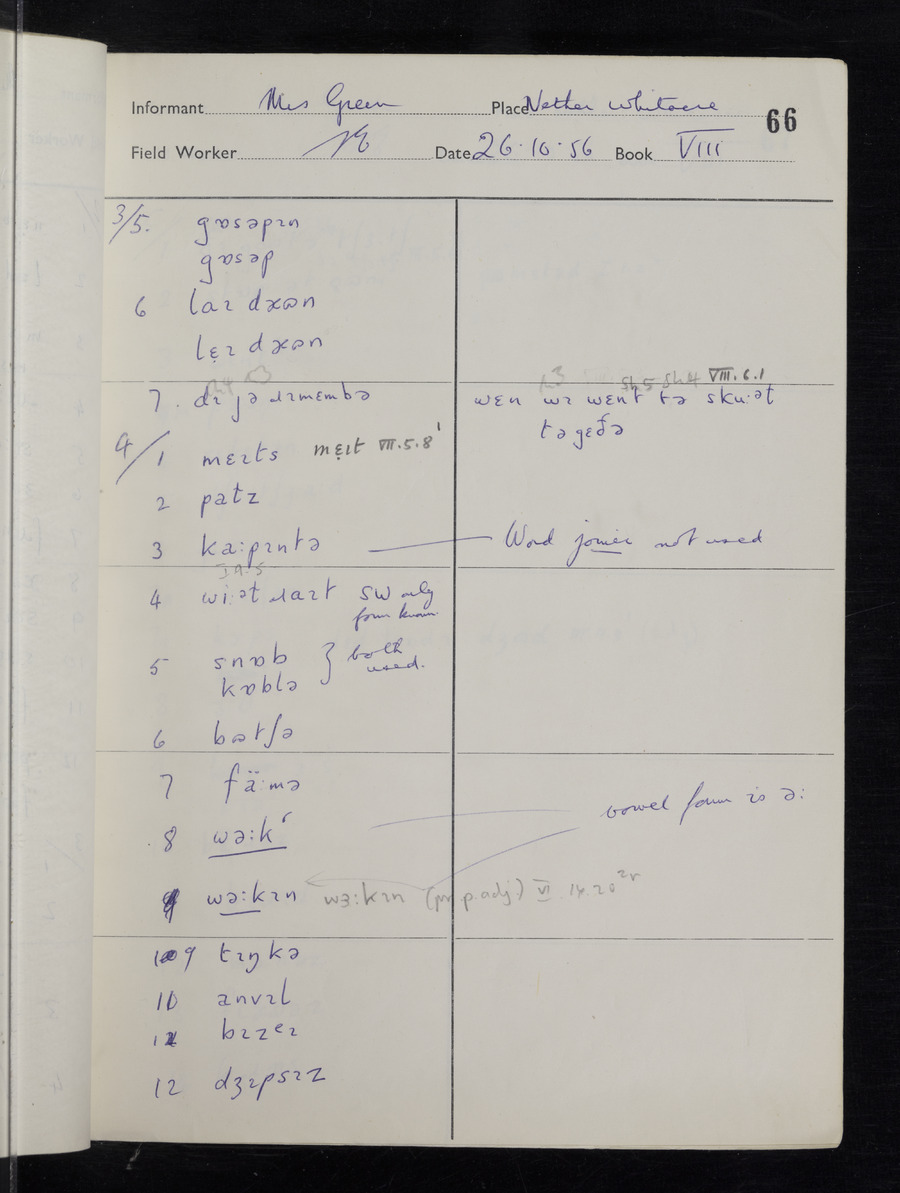 Informant Mrs Green Place Nether Whitacre 66
Field Worker Date 26·10·56 Book VIII
3/5. gɒsəpɪn
gɒsəp
6 laɪ dæʊn
lɛ̣ɪ dæʊn
7. dɪ jə ɹɪmɛmbə wɛn wɪ wɛnt tə skuːət
Sh5 Sh4 VIII.6.1
təgɛðə
4/1 mɛɪts mɛ̣ɪt VII.5.8¹
2 patz
3 kaːpɪntə Word joiner not used
4 wiːət ɹaɪt SW only
form known
5 snɒb } both
kɒblə used.
6 bʊtʃə
7 fäːmə
8 wəːkʻ vowel form is əː
wəːkɪn wɜːkɪn (pr.p.adj.) VI.14.20
9 tɪŋkə
10 anvɪl
11 bɪzeɪ
12 dʒɪpsɪz